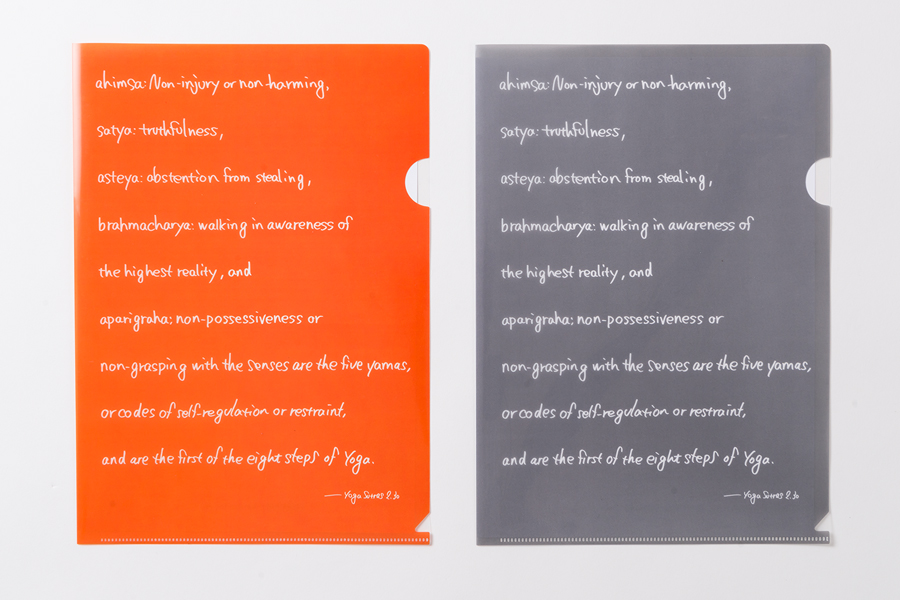 ahimsa: Non-injury or non-harming,
satya: truthfulness,
asteya: obstention from stealing,
brahmacharya: walking in awareness of
the highest reality, and
aparigraha; non-possessiveness or
non-grasping with the senses are the five yamas,
or codes of self-regulation or restraint,
and are the first of the eight steps of Yoga.
— Yoga Sitras 2.30
ahimsa: Non-injury or non-harming,
satya: truthfulness,
asteya: obstention from stealing,
brahmacharya: walking in awareness of
the highest reality, and
aparigraha; non-possessiveness or
non-grasping with the senses are the five yamas,
or codes of self-regulation or restraint,
and are the first of the eight steps of Yoga.
— Yoga Sitras 2.30